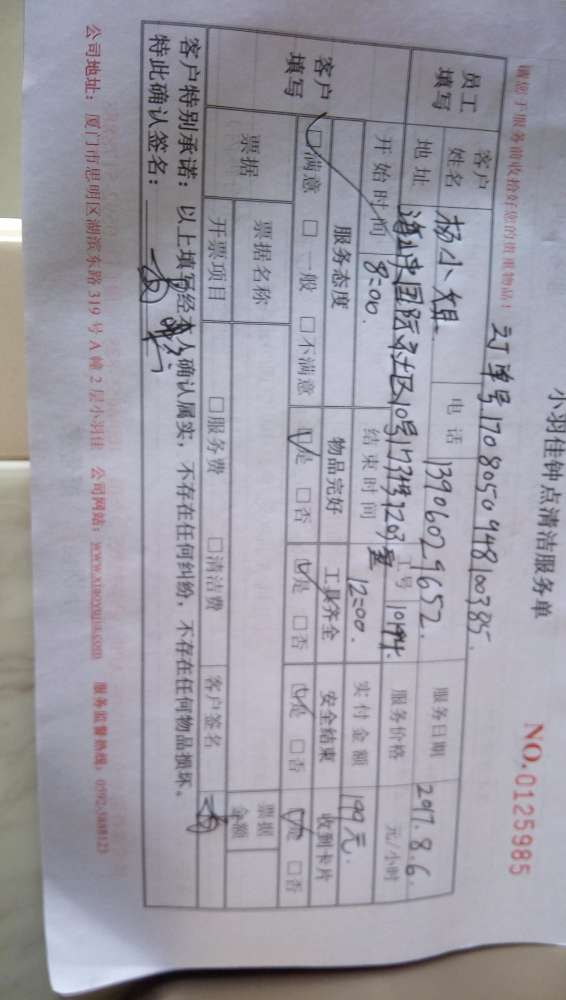 小羽佳钟点清洁服务单
NO.0125985
订单号1708050948100385.
请您于服务前收拾好您的贵重物品!
员工填写 客户姓名 杨小姐 电话 13906029652. 服务日期 2017.8.6.
地址 国际社区10号 1203室 工号 10194. 服务价格 元/小时
开始时间 8:00. 结束时间 12:00. 实付金额 199元.
客户填写 服务态度 物品完好 工具齐全 安全结束 收到卡片
☑满意 □一般 □不满意 ☑是 □否 ☑是 □否 ☑是 □否 ☑是 □否
票据 票据名称 票据金额
开票项目 □服务费 □清洁费 客户签名
客户特别承诺:以上填写经本人确认属实,不存在任何纠纷,不存在任何物品损坏。
特此确认签名:
公司地址:厦门市思明区湖滨东路319号A幢2层小羽佳 公司网站:www.xiaoyujia.com 服务监督热线:0592-5888123